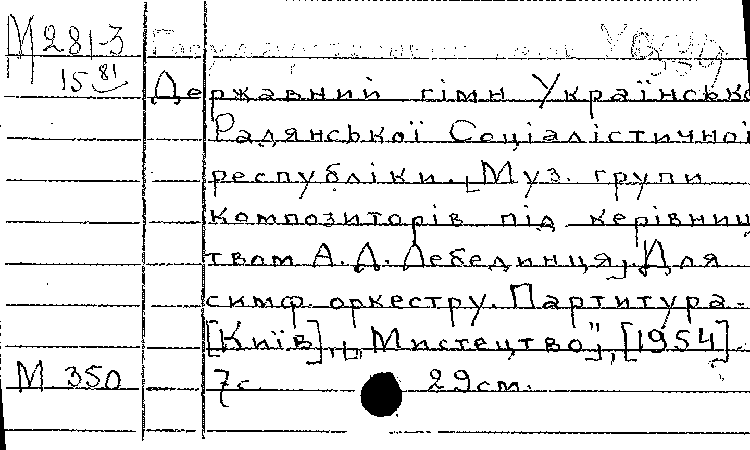 М 281-3 Государственный гимн УССР
15 81
Державний гімн Українсько
Радянської Соціалістичної
республіки. Муз. групи
композиторів під керівниц
твом А. Д. Лебединця, Для
симф. оркестру. Партитура-
[Київ], „Мистецтво", [1954]
М 350 7с. 29см.